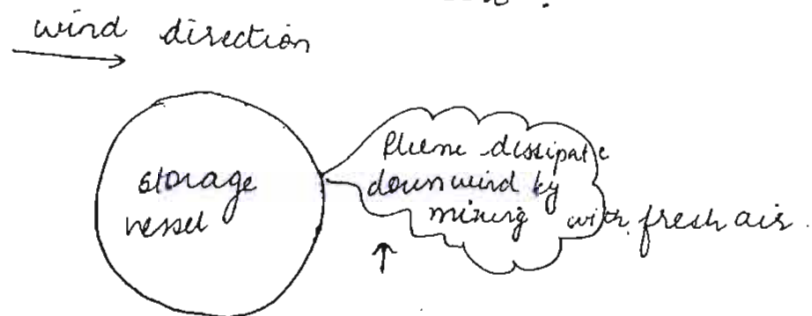 wind direction
storage
vessel
Plume dissipate
downwind by
mixing with fresh air.